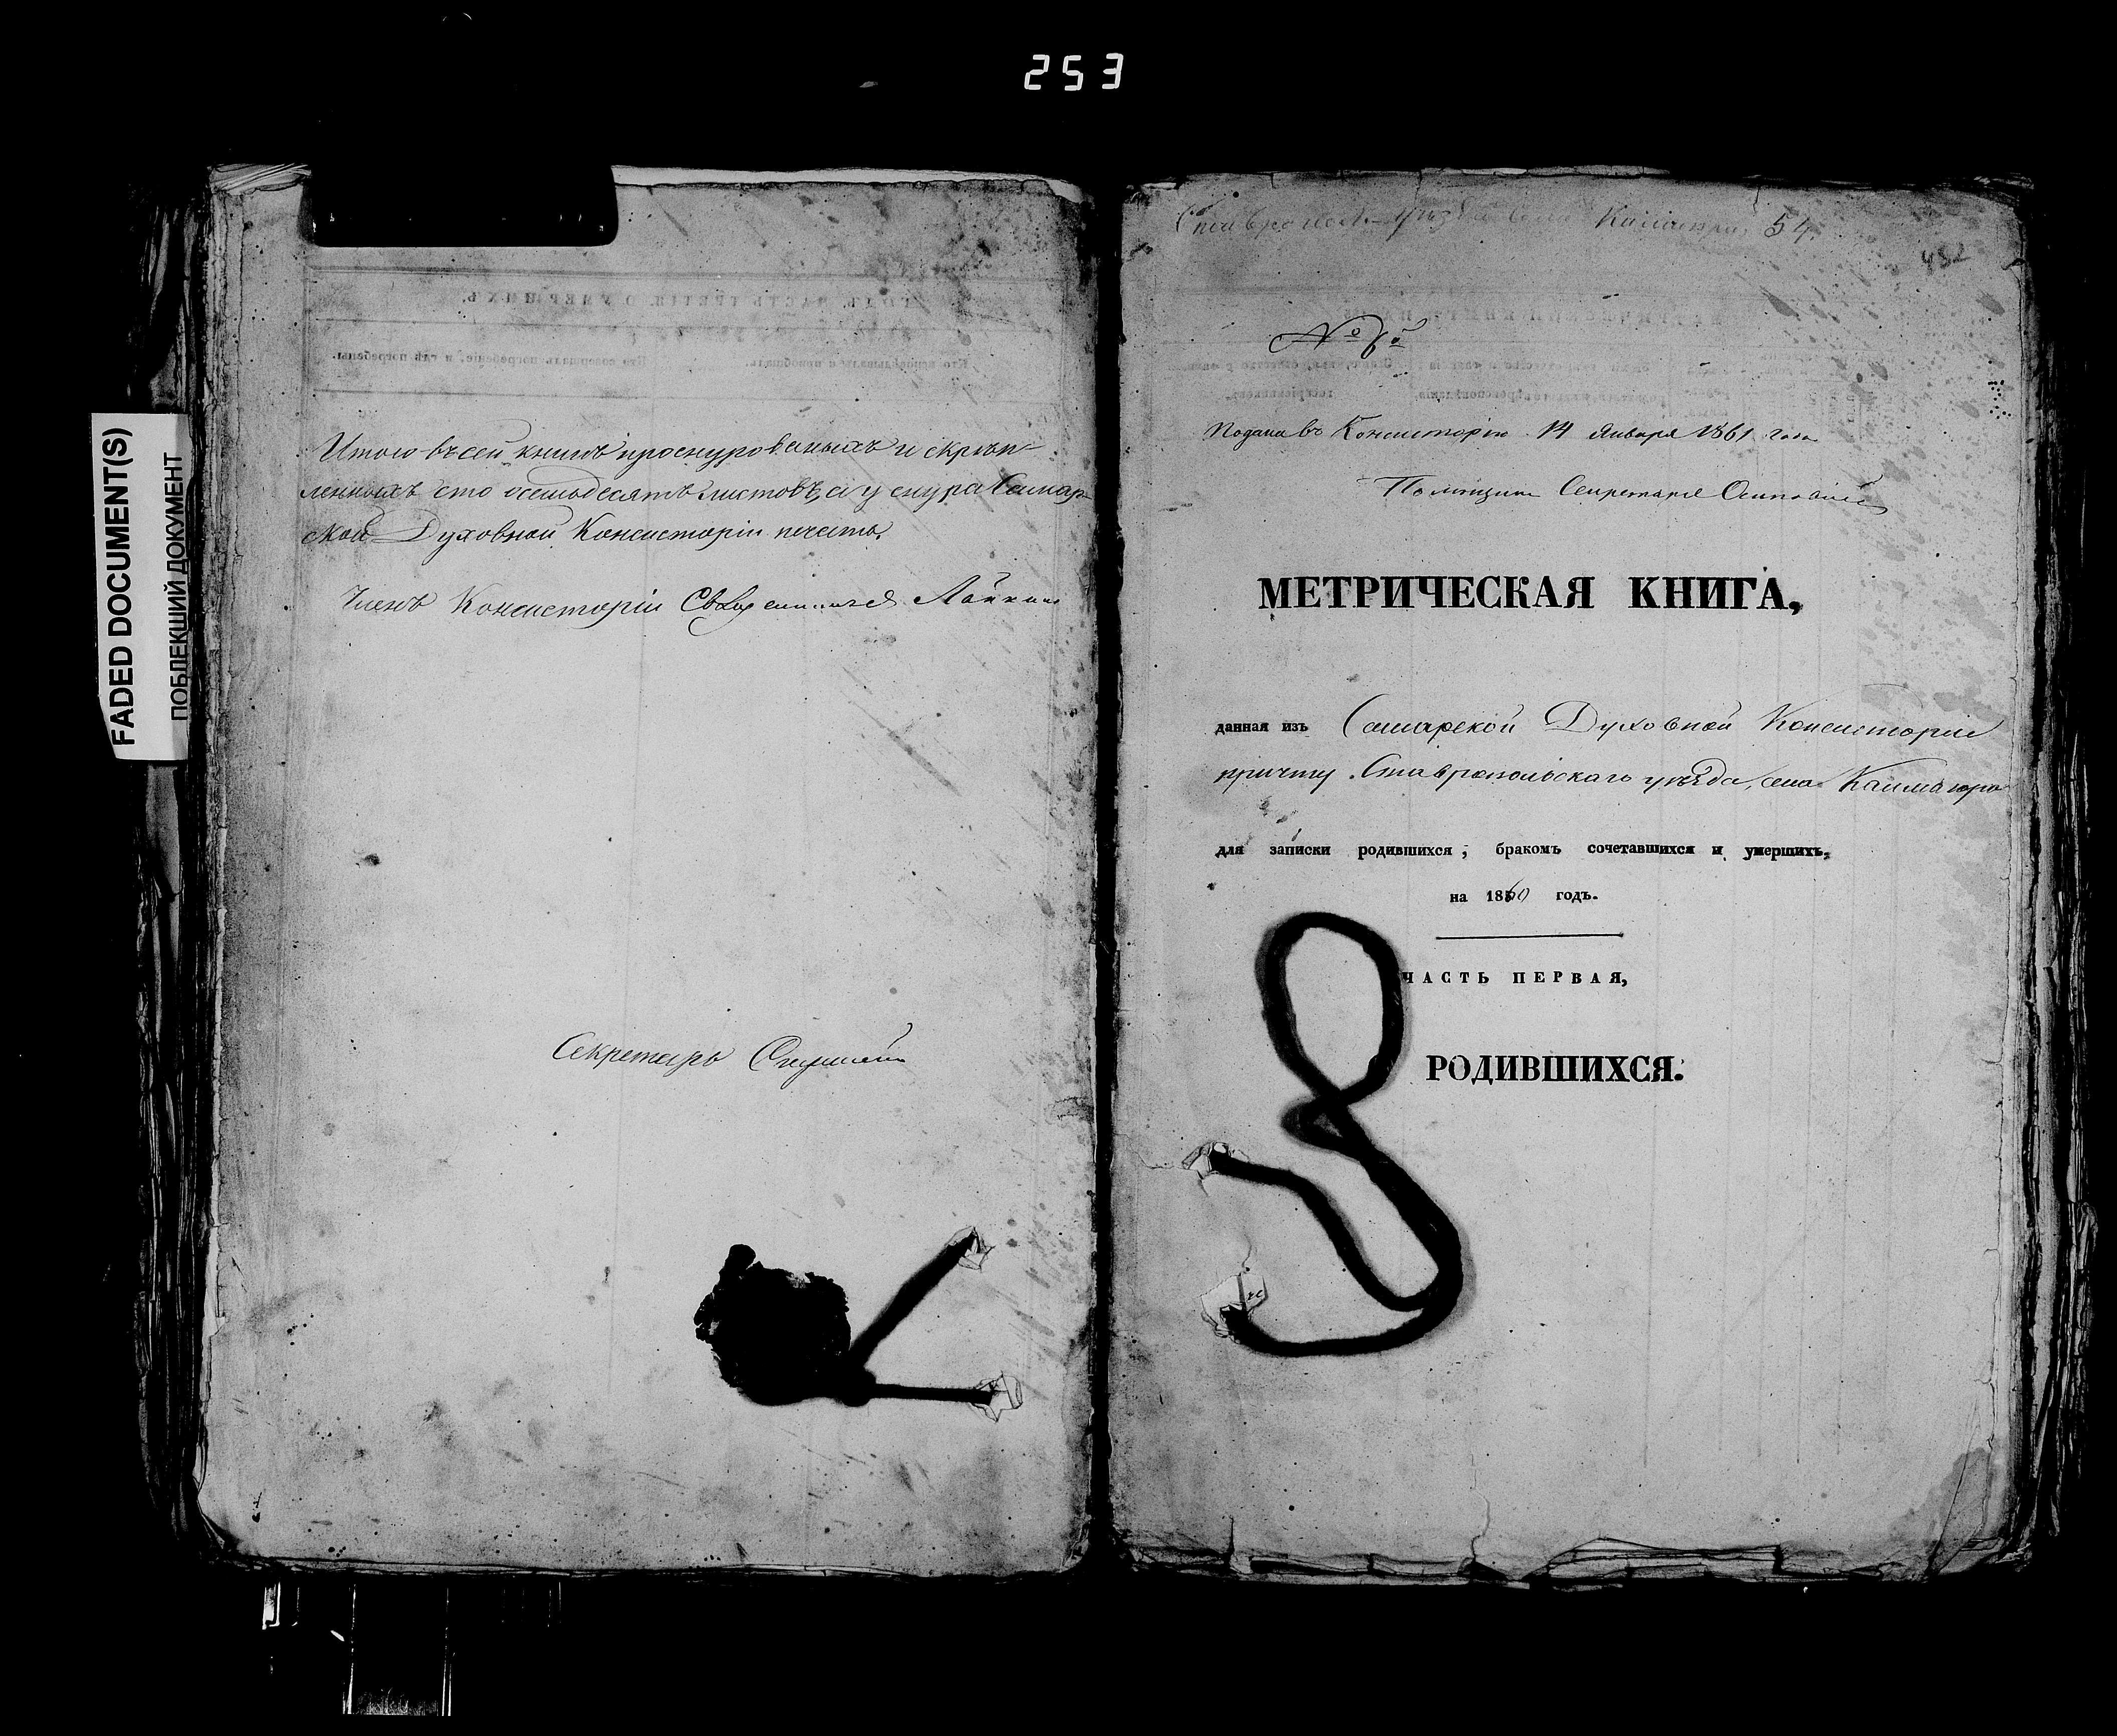 253
FADED DOCUMENT(S)
ПОБЛЕКШИЙ ДОКУМЕНТ
Итого въ сей книгѣ прошнурованныхъ и скрѣп-
ленныхъ сто восемьдесятъ листовъ, а у снура Самар-
ской Духовной Консисторіи печать.
Членъ Консисторіи Священникъ
Секретарь
54.
432
№ 6й
Подана въ Консисторію 14 Января 1861 года
Помощникъ Секретаря
МЕТРИЧЕСКАЯ КНИГА,
данная изъ Самарской Духовной Консисторіи
причту Ставропольскаго уѣзда, села
для записки родившихся, бракомъ сочетавшихся и умершихъ,
на 1860 годъ.
ЧАСТЬ ПЕРВАЯ,
РОДИВШИХСЯ.